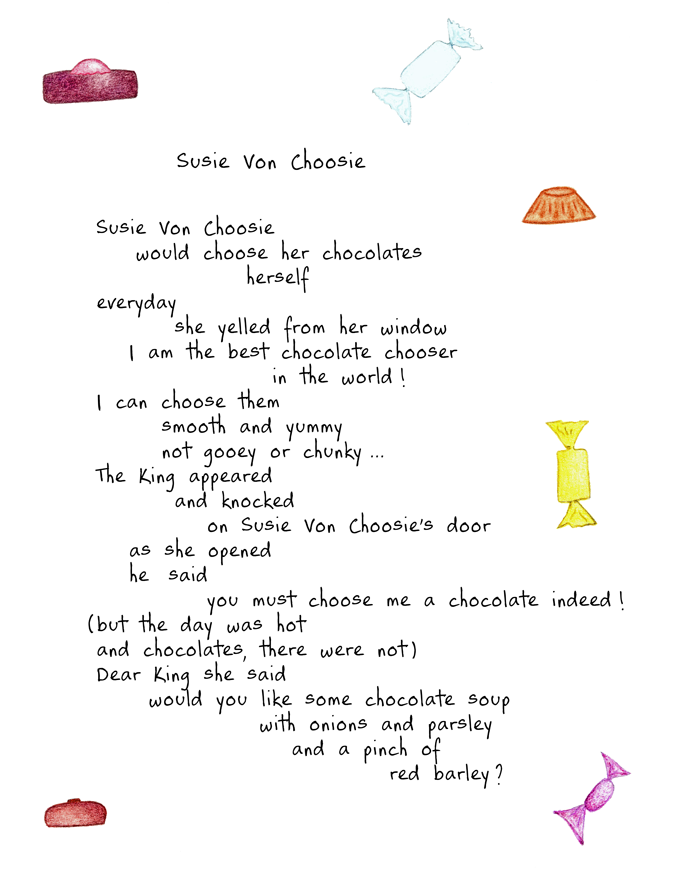 Susie Von Choosie
Susie Von Choosie
would choose her chocolates
herself
everyday
she yelled from her window
I am the best chocolate chooser
in the world!
I can choose them
smooth and yummy
not gooey or chunky...
The King appeared
and knocked
on Susie Von Choosie's door
as she opened
he said
you must choose me a chocolate indeed!
(but the day was hot
and chocolates, there were not)
Dear King she said
would you like some chocolate soup
with onions and parsley
and a pinch of
red barley?